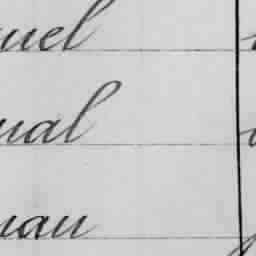 uel
ual
uan